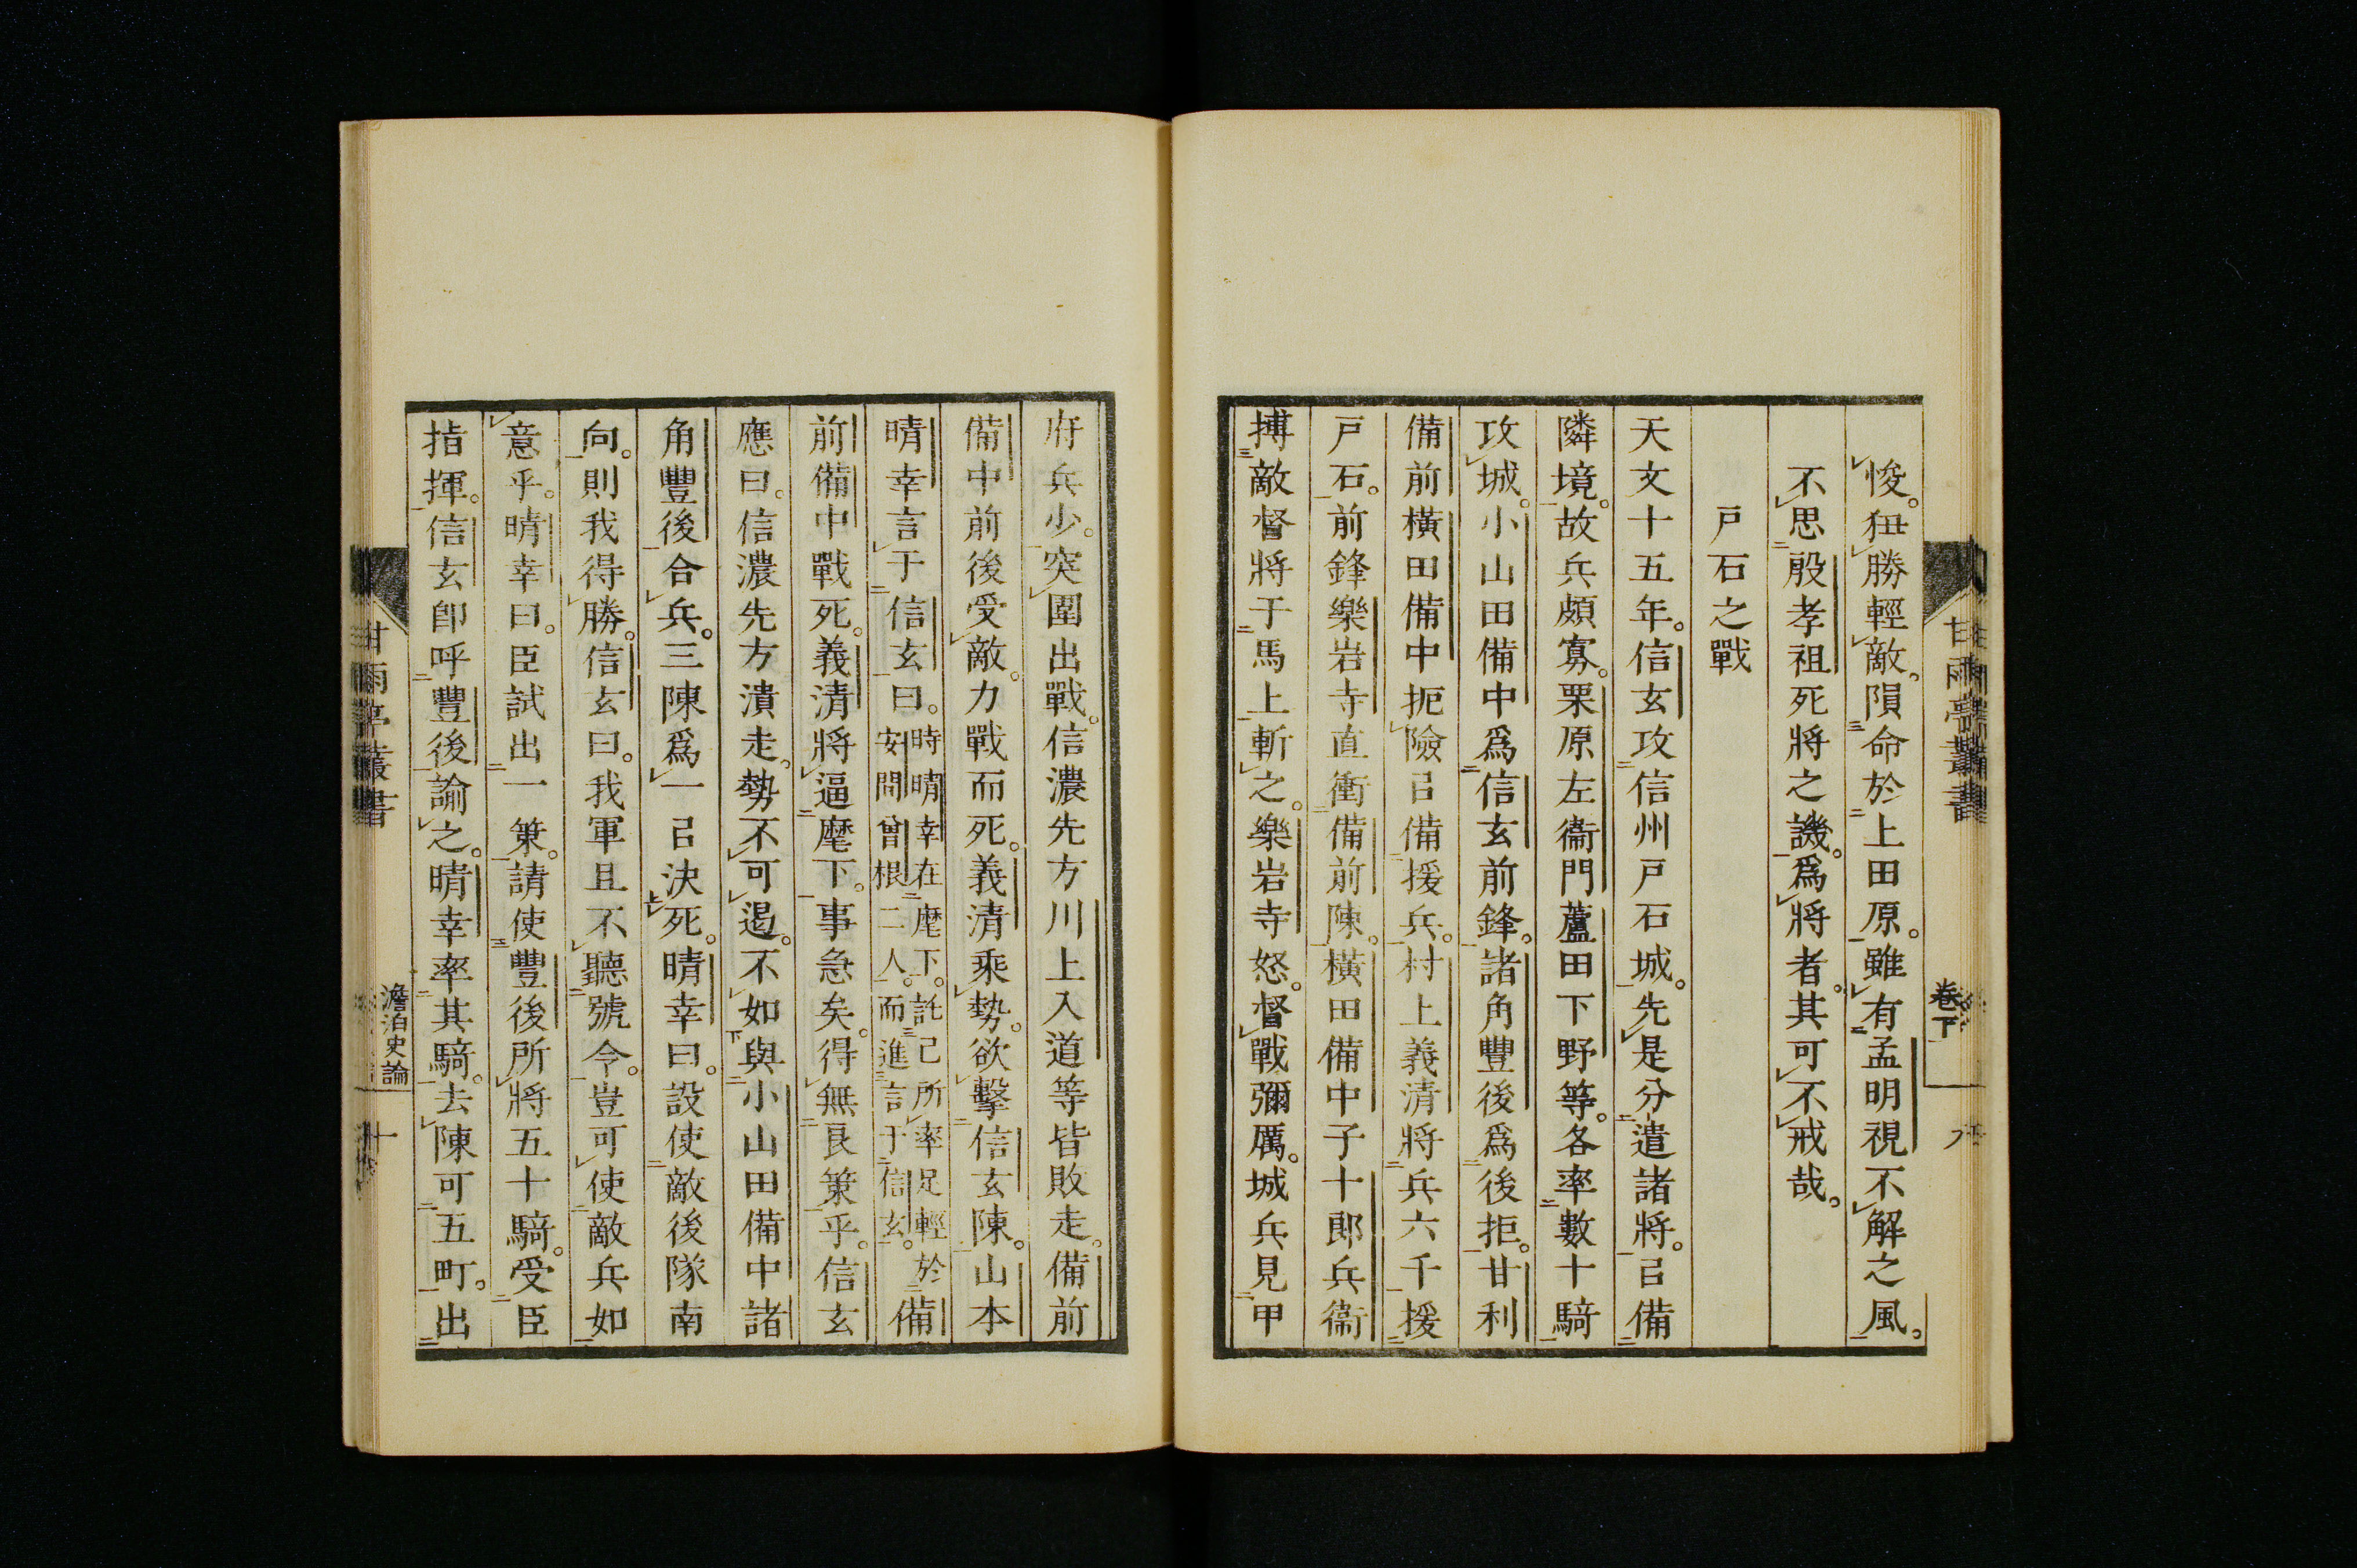 悛。狃勝輕敵。隕命於上田原。雖有孟明視不解之風。
不思殷孝祖死將之譏。爲將者。其可不戒哉。
戸石之戰
天文十五年。信玄攻信州戸石城。先是分遣諸將。㠯備
隣境。故兵頗寡。栗原左衞門蘆田下野等。各率數十騎
攻城。小山田備中爲信玄前鋒。諸角豐後爲後拒。甘利
備前橫田備中扼險㠯備援兵。村上義清將兵六千援
戸石。前鋒樂岩寺直衝備前陳。橫田備中子十郎兵衞
搏敵督將于馬上斬之。樂岩寺怒。督戰彌厲。城兵見甲
府兵少。突圍出戰。信濃先方川上入道等皆敗走。備前
備中前後受敵。力戰而死。義清乘勢。欲擊信玄陳。山本
晴幸言于信玄曰。時晴幸在麾下。託己所率足輕於安間曾根二人。而進言于信玄。備
前備中戰死。義清將逼麾下。事急矣。得無良策乎。信玄
應曰。信濃先方潰走。勢不可遏。不如與小山田備中諸
角豐後合兵。三陳爲一㠯決死。晴幸曰。設使敵後隊南
向。則我得勝。信玄曰。我軍且不聽號令。豈可使敵兵如
意乎。晴幸曰。臣試出一策。請使豐後所將五十騎。受臣
指揮。信玄卽呼豐後諭之。晴幸率其騎。去陳可五町。出
甘雨亭叢書
卷下
九
甘雨亭叢書
澹泊史論
十